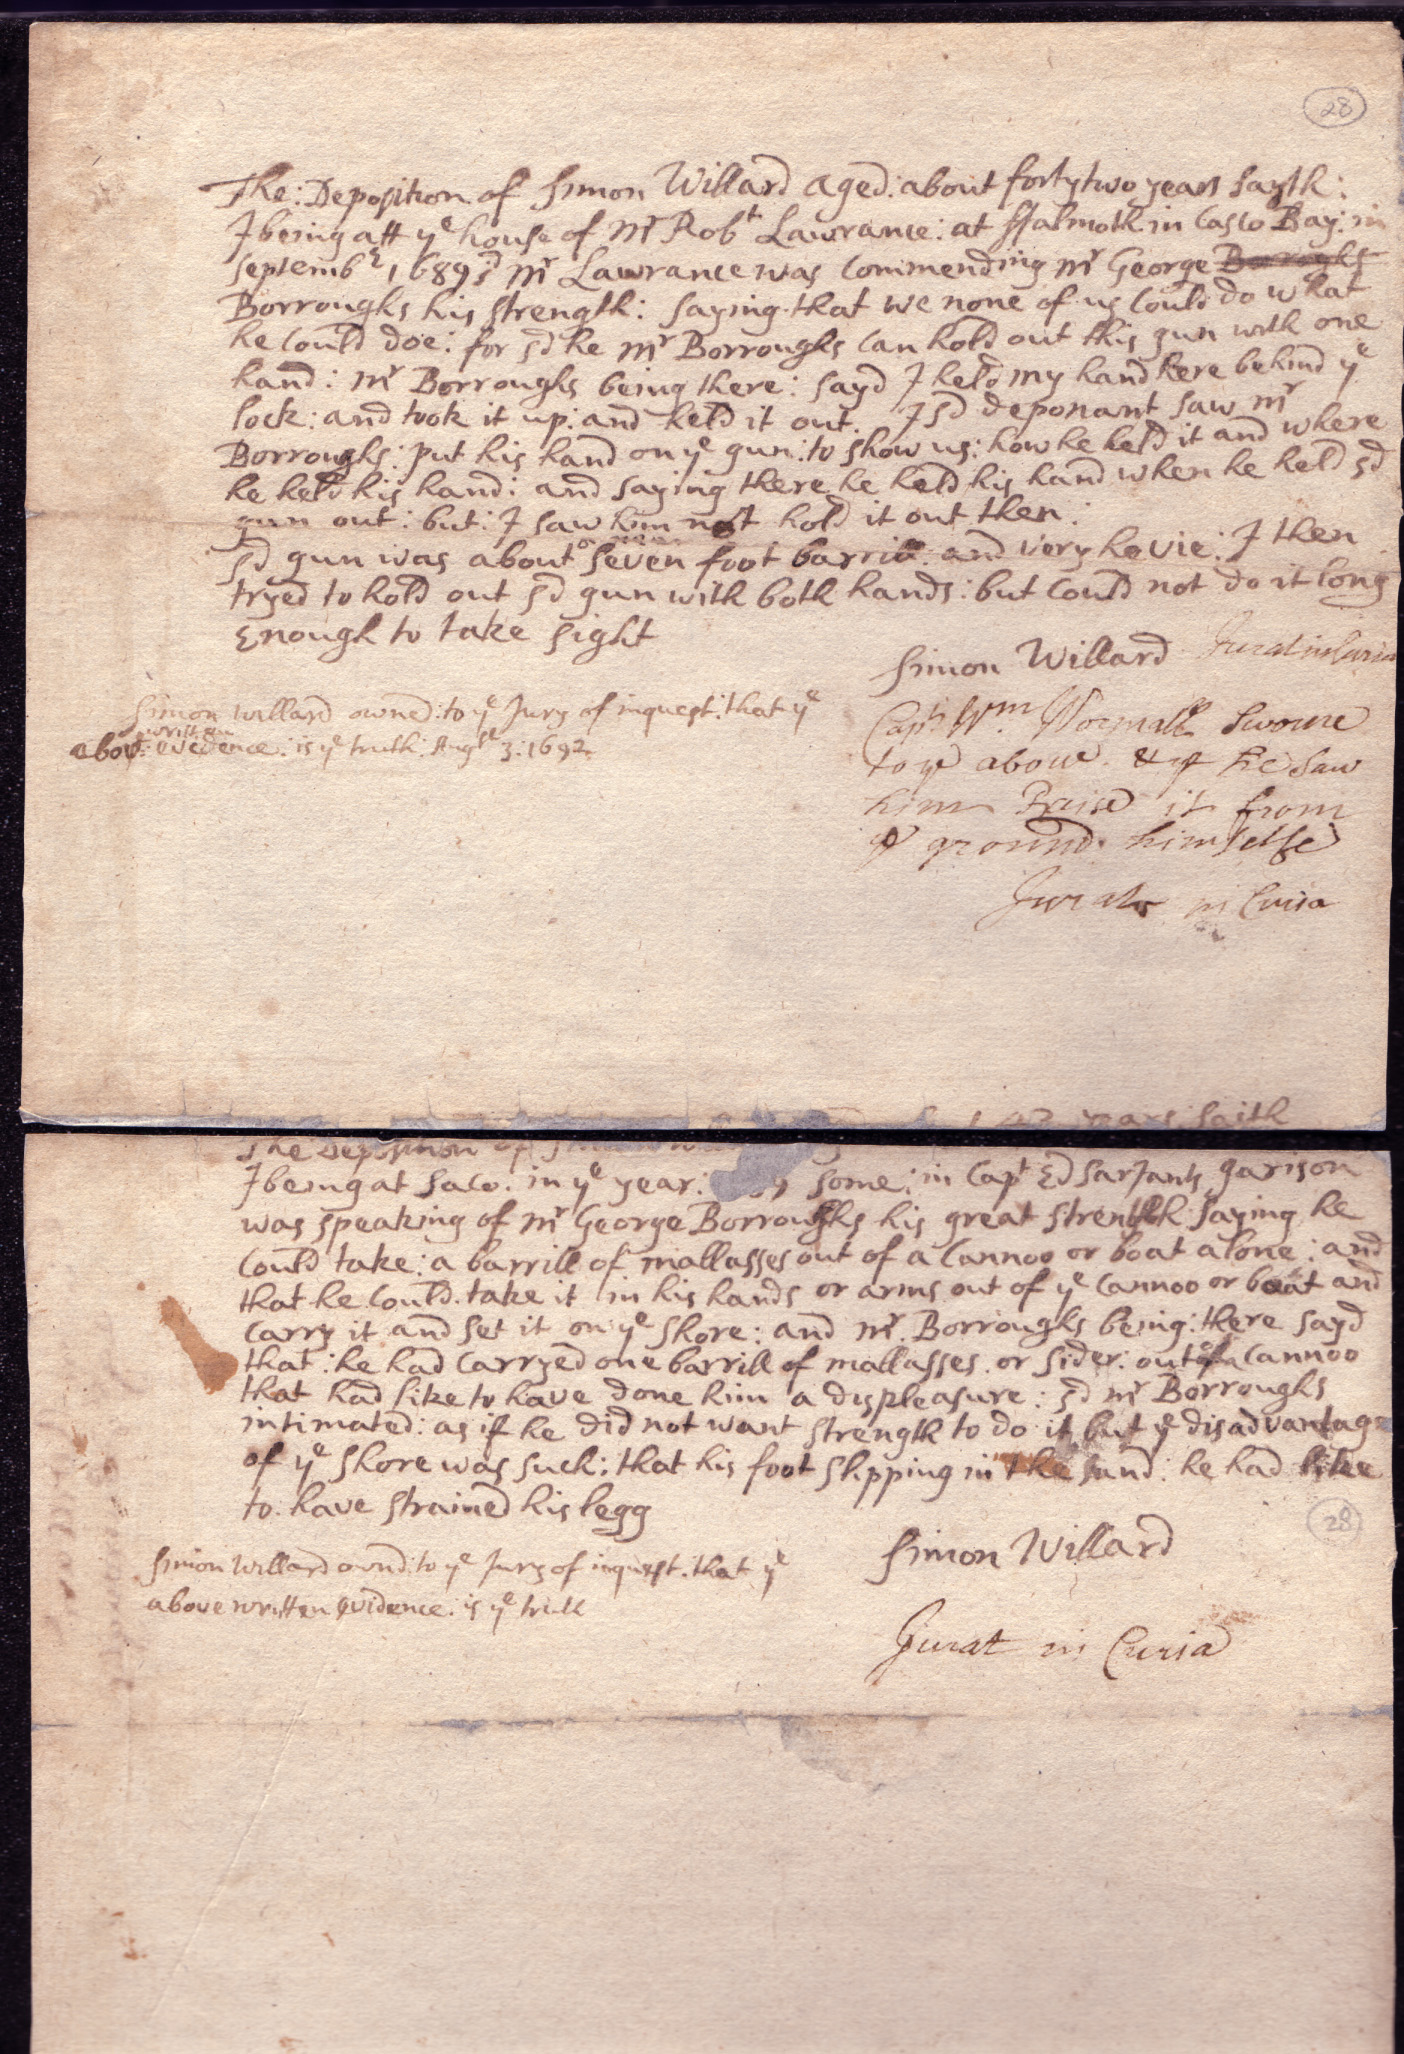 28
The: Deposition of Simon Willard aged: about forty two years sayth:
I being att yᵉ house of Mʳ Robᵗ Lawrance: at ffalmoth in Casco Bay: in
Septembʳ 1689 sᵈ Mʳ Lawrance was Commending mʳ George Borroghs
Borroughs his strength: saying that we none of us could do what
he could doe: for sᵈ he mʳ Borroughs can hold out this gun with one
hand: mʳ Borroughs being there: sayd I held my hand here behind yᵉ
lock: and took it up: and held it out. I sᵈ deponant saw mʳ
Borroughs: put his hand on yᵉ gun: to show us: how he held it and where
he held his hand: and saying there he held his hand when he held sᵈ
gun out: but: I saw him not hold it out then:
Sᵈ gun was about seven foot barrill: and very hevie: I then
tryed to hold out sᵈ gun with both hands: but could not do it long
Enough to take sight
Simon Willard Jurat in Curia
Simon willard owned: to yᵉ Jury of inquest: that yᵉ
above written evedence: is yᵉ truth: Augˢᵗ 3: 1692
Capᵗ Wᵐ Wormall Sworne
to yᵉ above & yᵗ he Saw
him Raise it from
yᵉ ground himselfe
Jurat in Curia
years saith
The Deposition of
I being at Saco. in yᵉ year: 9 some: in Capᵗ Ed Sarjants garison
was speaking of mʳ George Borroughs his great strength: saying he
could take: a barrill of mallasses out of a Cannoo or boat alone: and
that he could take it in his hands or arms out of yᵉ Cannoo or boat and
carry it and set it on yᵉ shore: and mʳ Borroughs being: there sayd
that: he had carryed one barrill of mallasses or sider: out of a Cannoo
that had like to have done him a displeasure: sᵈ mʳ Borroughs
intimated: as if he did not want strength to do it but yᵉ disadvantage
of yᵉ shore was such: that his foot slipping in the sand: he had liter
to have strained his legg
28
Simon Willard
Simon willard ownd: to yᵉ Jury of inquest: that yᵉ
above written evidence: is yᵉ truth
Jurat in Curia